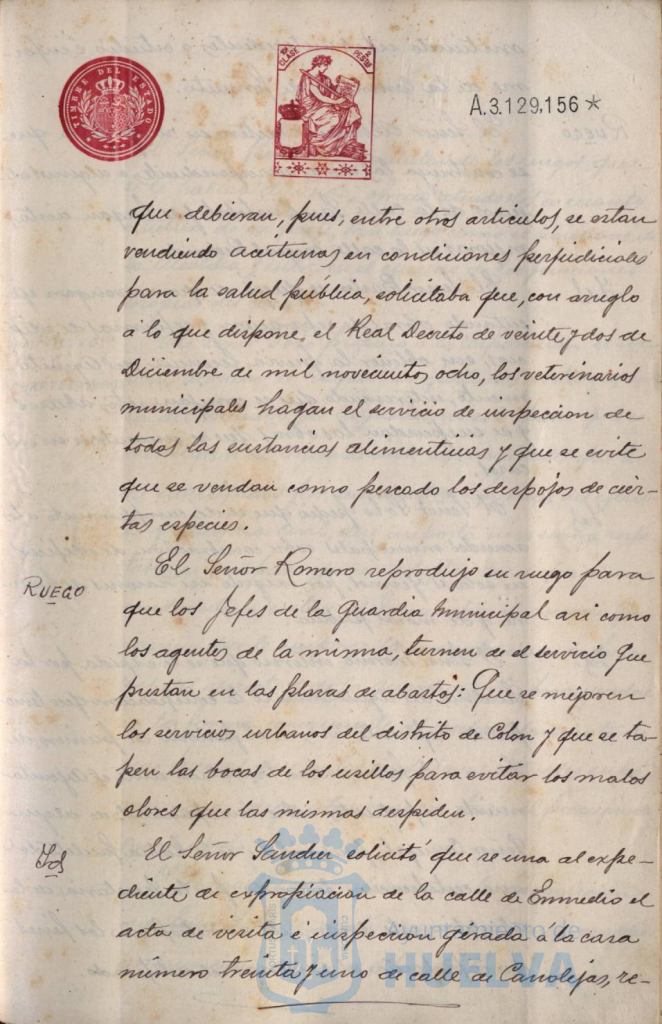 TIMBRE DEL ESTADO
8ª CLASE 2 PESETAS
A.3.129,156*
que debieran, pues, entre otros articulos, se estan
vendiendo aceitunas en condiciones perjudiciales
para la salud pública, solicitaba que, con arreglo
á lo que dispone el Real Decreto de veinte y dos de
Diciembre de mil novecientos ocho, los veterinarios
municipales hagan el servicio de inspeccion de
todas las sustancias alimenticias y que se evite
que se vendan como pescado los despojos de cier-
tas especies.
RUEGO
El Señor Romero reprodujo su ruego para
que los Jefes de la Guardia Municipal asi como
los agentes de la misma, turnen de el servicio que
prestan en las plazas de abastos: Que se mejoren
los servicios urbanos del distrito de Colon y que se ta-
pen las bocas de los usillos para evitar los malos
olores que las mismas despiden.
Id
El Señor solicitó que se una al expe-
diente de expropiacion de la calle de Enmedio el
acta de visita é inspeccion girada á la casa
número treinta y uno de calle de Canalejas, re-
Ayuntamiento de
HUELVA